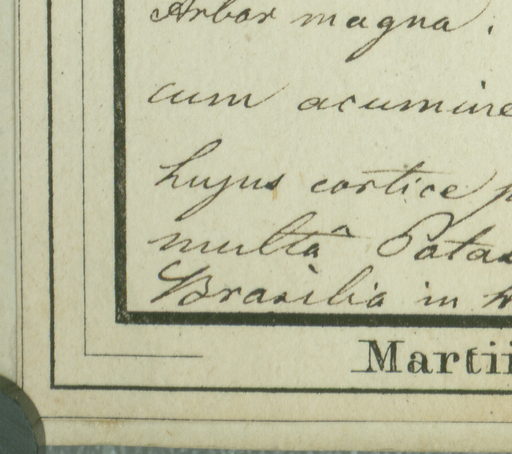 Arbor magna.
cum acumine
hujus cortice p
multâ Potas
Brasilia in
Martii